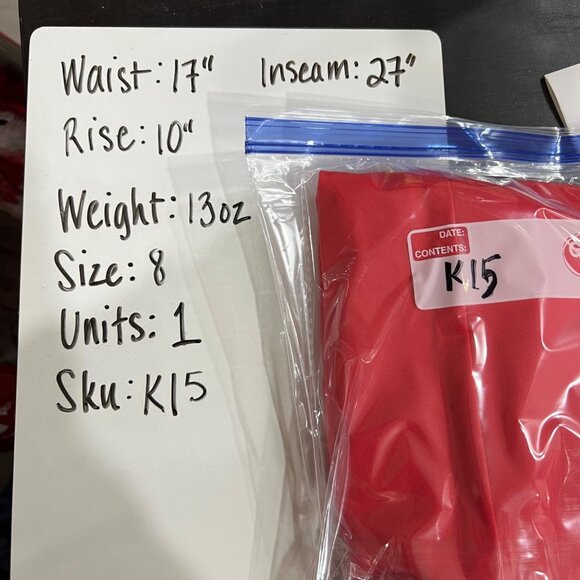 Waist: 17" Inseam: 27"
Rise: 10"
Weight: 13oz
Size: 8
Units: 1
Sku: K15
DATE:
CONTENTS:
K15